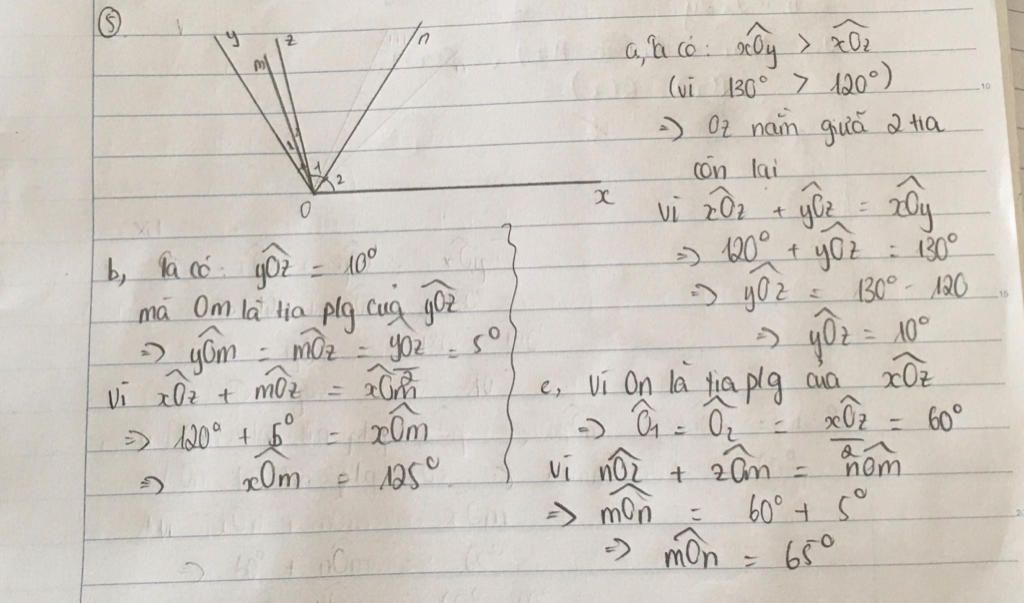 ⑤
y
z
m
n
1
2
O
x
a, Ta có: xÔy > xÔz
(vì 130° > 120°)
=> Oz nằm giữa 2 tia
còn lại
vì xÔz + yÔz = xÔy
=> 120° + yÔz = 130°
=> yÔz = 130° - 120
=> yÔz = 10°
b, Ta có: yÔz = 10°
mà Om là tia plg của yÔz
=> yÔm = mÔz = yÔz/2 = 5°
Vì xÔz + mÔz = xÔm
=> 120° + 5° = xÔm
=> xÔm = 125°
c, Vì On là tia plg của xÔz
=> Ô₁ = Ô₂ = xÔz/2 = 60°
Vì nÔz + zÔm = nÔm
=> mÔn = 60° + 5°
=> mÔn = 65°